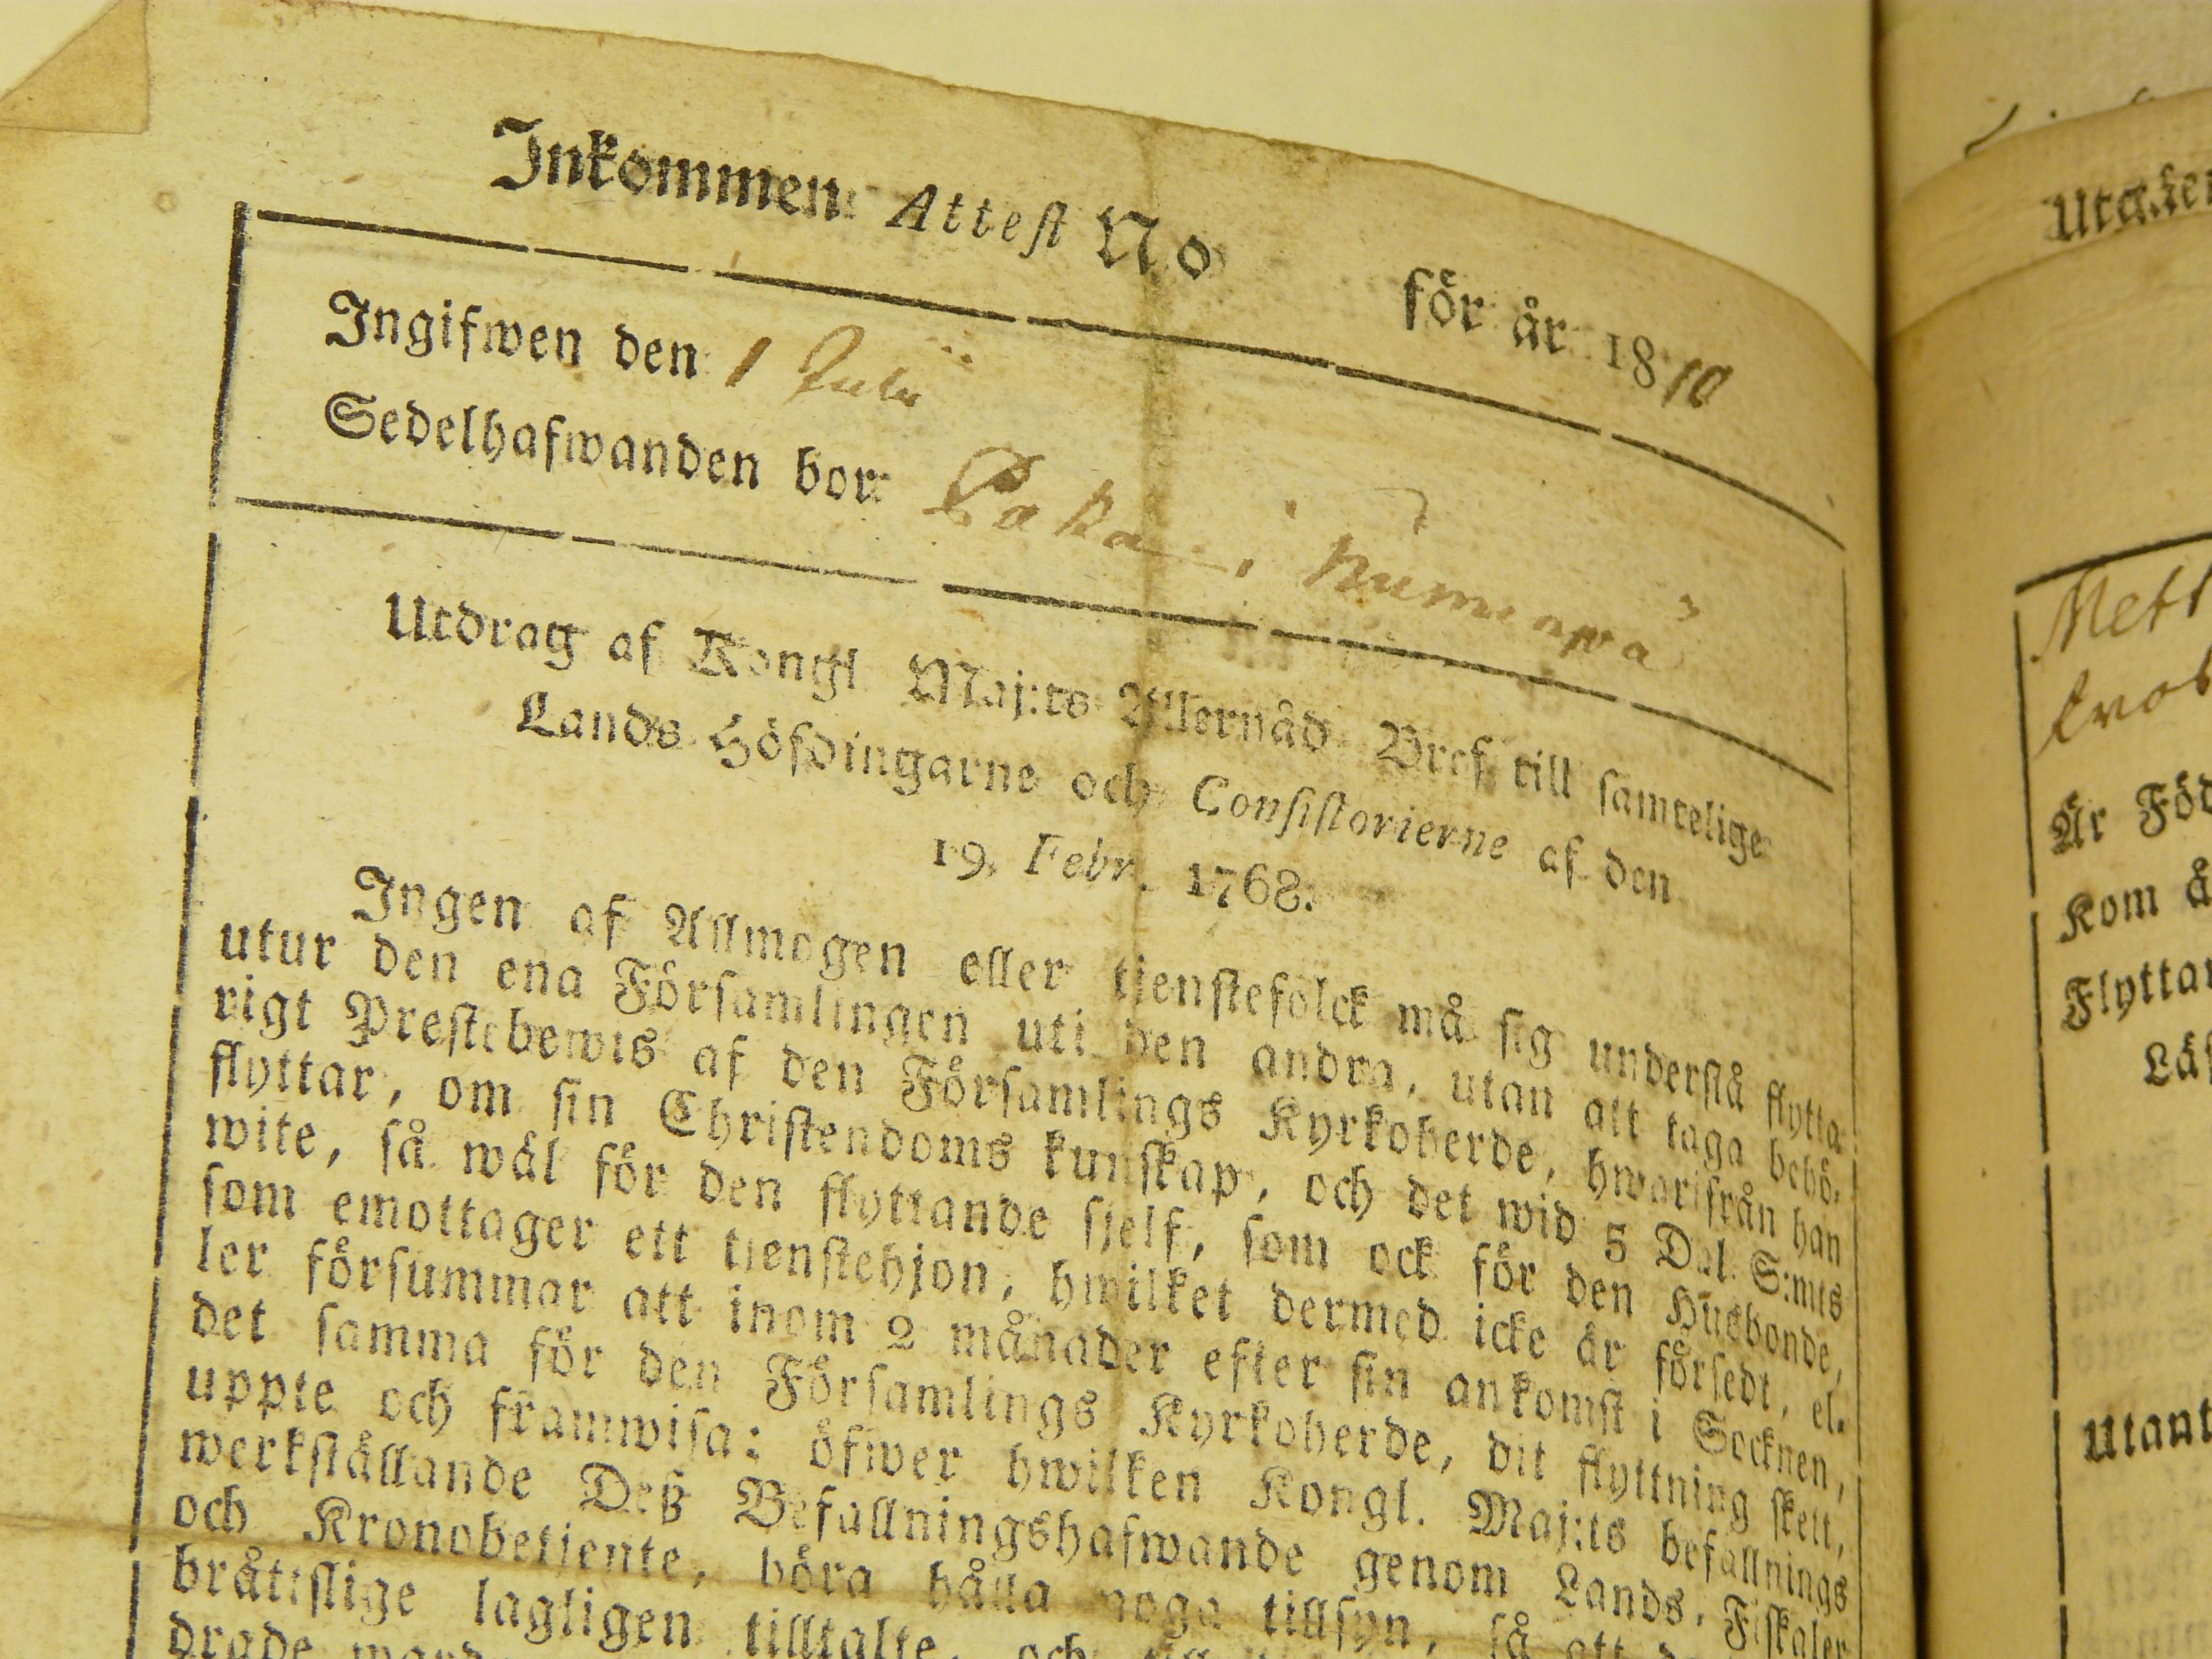 Inkommen Attest No för år 1810
Ingifwen den 1 Julii
Sedelhafwanden bor: Paka i Kumingå
Utdrag af Kongl Maj:ts Allernåd. Bref till samtelige
Lands Höfdingarne och Consistorierne af den
19. Febr. 1768.
Ingen af Allmogen eller tjenstefolck må sig understå flytta
utur den ena Församlingen uti den andra, utan att taga behö-
rigt Prestebewis af den Församlings Kyrkoherde, hwarifrån han
flyttar, om sin Christendoms kunskap, och det wid 5 Dal. S:mts
wite, så wäl för den flyttande sjelf, som ock för den Husbonde,
som emottager ett tienstehjon, hwilket dermed icke är försedt, el-
ler försummar att inom 2 månader efter sin ankomst i Socknen,
det samma för den Församlings Kyrkoherde, dit flyttning skett,
uppte och framwisa: öfwer hwilken Kongl. Maj:ts befallnings
werkställande Deß Befallningshafwande genom Lands-Fiskaler
och Kronobetjente, böra hålla noga tillsyn, så att
bråttslige lagligen tilltalte, och
drade
Är Föd
Kom å
Flyttar
Läs
Utant